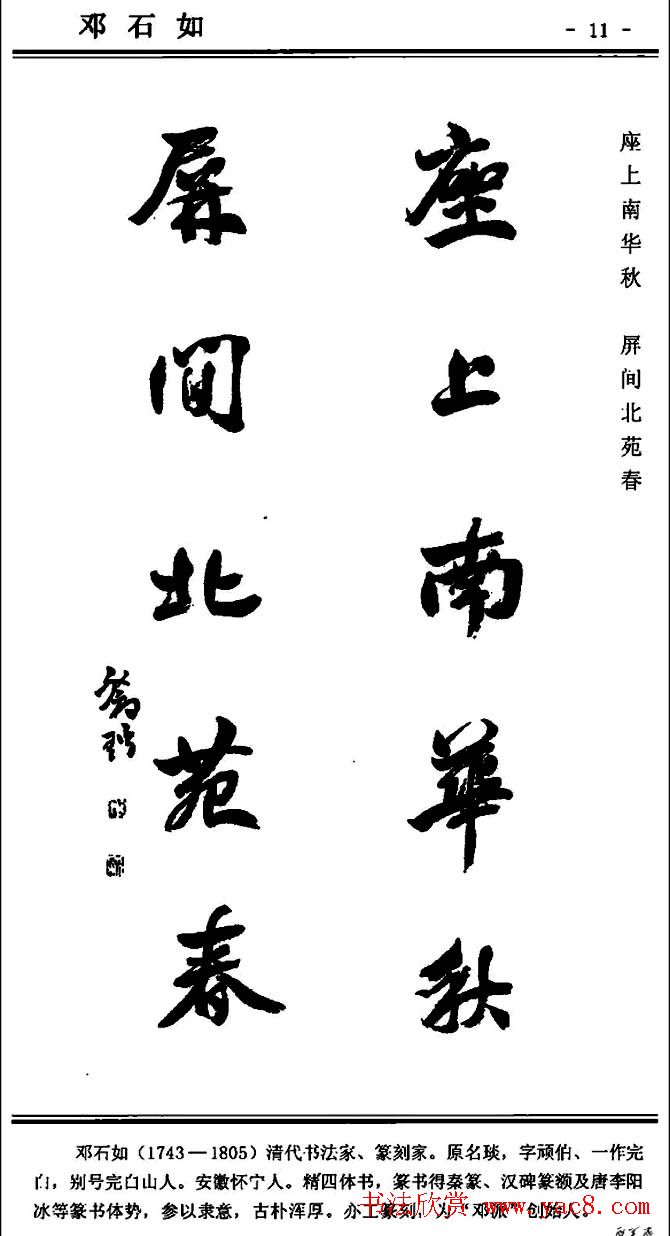 邓石如
- 11 -
座上南华秋 屏间北苑春
座上南華秋
屏間北苑春
邓石如(1743—1805)清代书法家、篆刻家。原名琰,字顽伯、一作完
白,别号完白山人。安徽怀宁人。精四体书,篆书得秦篆、汉碑篆额及唐李阳
冰等篆书体势,参以隶意,古朴浑厚。亦工篆刻,为“邓派”创始人。
书法欣赏 www.yac8.com